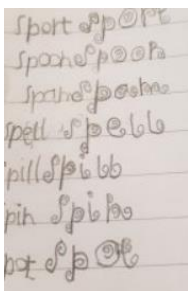 sport sport
spoon spoon
spane spane
spell spell
pill spill
pin spin
pot spot